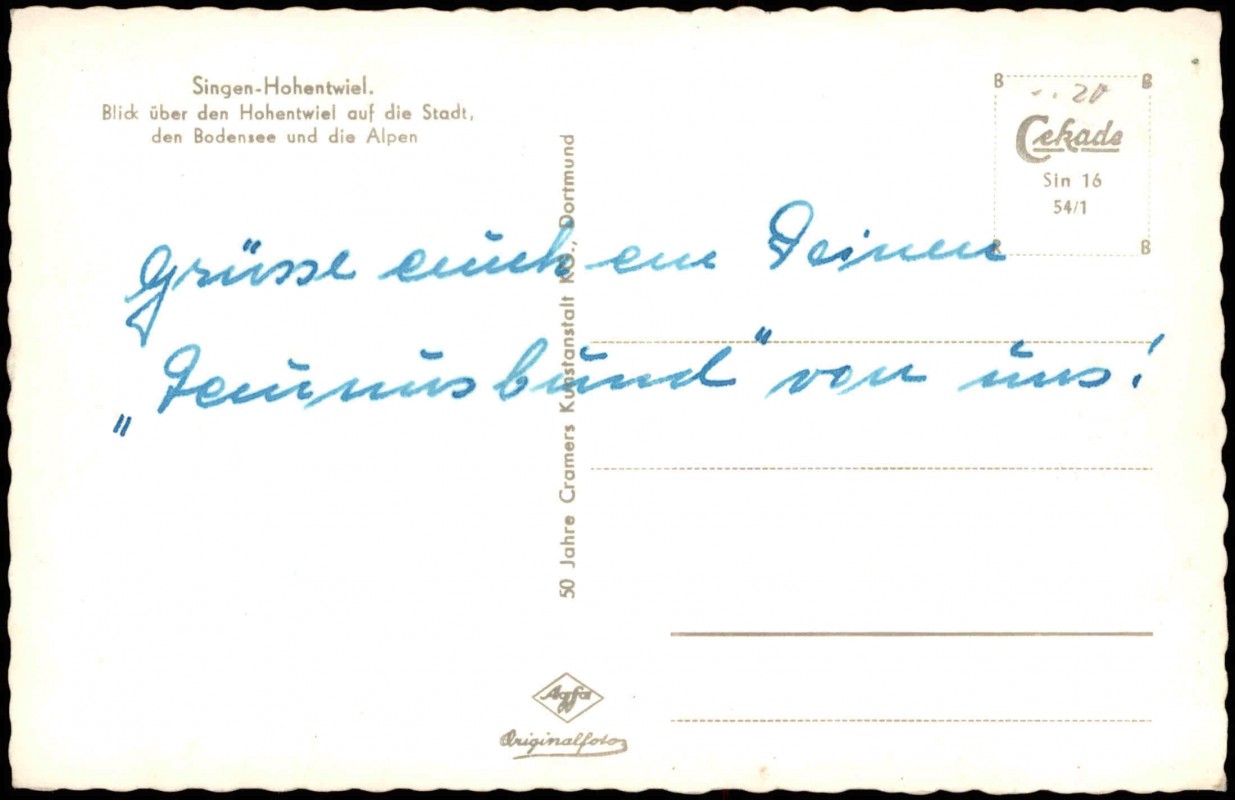 Singen-Hohentwiel.
Blick über den Hohentwiel auf die Stadt,
den Bodensee und die Alpen
B B
20
Cekade
Sin 16
54/1
B B
Grüsse auch an Deinen
„Taunusbund" von uns!
50 Jahre Cramers Kunstanstalt KG., Dortmund
Agfa
Originalfoto